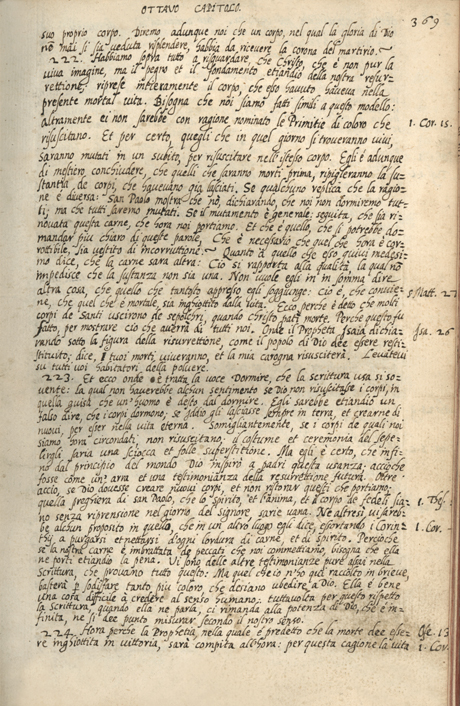 OTTAVO CAPITOLO.
369
suo proprio corpo. Diremo adunque noi che un corpo, nel qual la gloria di Dio
non mai si sia veduta risplendere, habbia da ricevere la corona del martirio.
222. Habbiamo sopra tutto a risguardare, che Christo, che è non pur la
viva imagine, ma il pegno et il fondamento etiandio della nostra resur-
rettione, riprese intieramente il corpo, che esso havuto haveva nella
presente mortal vita. Bisogna che noi siamo fatti simili a questo modello:
altramente ei non sarebbe con ragione nominato le Primitie di coloro che
risuscitano. Et per certo, quegli che in quel giorno si troveranno vivi,
saranno mutati in un subito, per risuscitare nell'istesso corpo. Egli è adunque
di mestiero conchiudere, che quelli che saranno morti prima, ripiglieranno la su-
stantia de corpi, che havevano già lasciati. Se qualchuno replica che la ragio-
ne è diversa: San Paolo mostra che nò, dichiarando, che noi non dormiremo tut-
ti; ma che tutti saremo mutati. Se il mutamento è generale: seguita, che sia ri-
novata questa carne, che hora noi portiamo. Et che è quello, che si potrebbe do-
mandar più chiaro di queste parole, Che è necessario che quel che hora è cor-
rottibile, sia vestito di incorruttione. Quanto a quello che esso quivi medesi-
mo dice, che la carne sarà altra: Ciò si rapporta alla qualità, la qual nò
impedisce che la sustanza non sia una. Non vuole egli in in somma dire
altra cosa, che quello che tantosto appresso egli soggiunge: ciò è, che convie-
ne, che quel che è mortale, sia inghiottito dalla vita. Ecco perche è detto che molti
corpi de Santi uscirono de sepolchri, quando Christo fu morto. Perche questo fu
fatto, per mostrare ciò che averrà di tutti noi. Onde il Propheta Isaia dichia-
rando sotto la figura della risurrettione, come il popolo di Dio dee essere resti-
tituito, dice, I tuoi morti viveranno, et la mia carogna risusciterà. Levatevi
su tutti voi habitatori della polvere.
223. Et ecco onde è tratta la voce Dormire, che la scrittura usa sì so-
vente: la qual non haverebbe alchun sentimento se Dio non risuscitasse i corpi, in
quella guisa che un'huomo è desto dal dormire. Egli sarebbe etiandio un
falso dire, che i corpi dormono; se Iddio gli lasciasse sempre in terra, et crearne di
nuovi, per esser nella vita eterna. Somigliantemente, se i corpi de quali noi
siamo hora circondati, non risuscitano, il costume et ceremonia del sepe-
lirgli saria una sciocca et folle superstitione. Ma egli è certo, che insi-
no dal principio del mondo Dio inspirò a padri questa usanza; accioche
fosse come un'arra et una testimonianza della resurettione futura. Oltre
acciò, se Dio dovesse creare nuovi corpi, et non ristorar questi che portiamo:
quella preghiera di san Paolo, che lo spirito, et l'anima, et il corpo de fedeli sia-
no senza riprensione nel giorno del signore, saria vana. Ne altresì vi sareb-
be alchun proposito in quello, che in un altro luogo egli dice, essortando i Corin-
thij a purgarsi et nettarsi d'ogni lordura di carne, et di spirito. Percioche
se la nostra carne è imbrattata de peccati che noi commettiamo, bisogna che ella
ne porti etiando la pena. Vi sono delle altre testimonianze pure assai nella
Scrittura, che provano tutto questo: Ma quel che io n'hò quì raccolto in brieve,
basterà a spastare tanto più coloro, che desiano ubedire a Dio. Ella è bene
una cosa difficile à credere al senso humano: tuttavolta per questo rispetto
la Scrittura, quando ella ne parla, ci rimanda alla potenza di Dio, che è in-
finita, ne si dee punto misurar secondo il nostro senso.
224. Hora perche la Prophetia, nella quale è predetto che la morte dee esse-
re inghiottita in vittoria, sarà compita all'hora: per questa cagione la vita
1. Cor. 15.
Matt. 27
Isa. 26
1. Thes.
1. Cor.
Ose. 13
1. Cor.